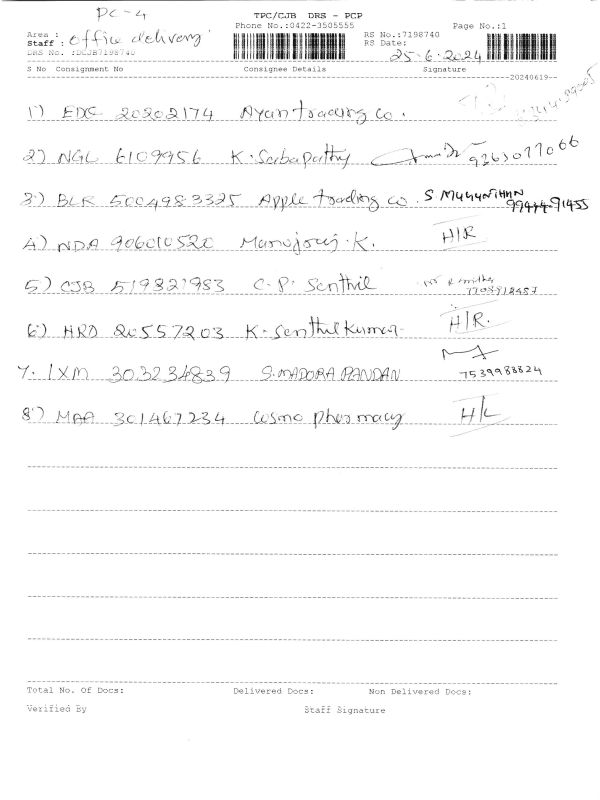 PC-4 TPC/CJB DRS - PCP
Phone No.:0422-3505555 Page No.:1
Area : RS No.:7198740
Staff : office delivery RS Date:
DRS No. :DCJB7198740 25-6-2024
S No Consignment No Consignee Details Signature
20240619--
1) EDC 20202174 Ayan trading co.
2) NGL 6109956 K. Sabapathy
3) BLR 5004983325 Apple trading co. S
4) NDA 906010520 H/R
5) CJB 519821983 C. P. Senthil
6) HRD 20557203 K. Senthil Kumar. H/R.
7. IXM 303234839 S. MADORA PANDAN
7539988824
8) MAA 301467234 cosmo pharmacy
Total No. Of Docs: Delivered Docs: Non Delivered Docs:
Verified By Staff Signature